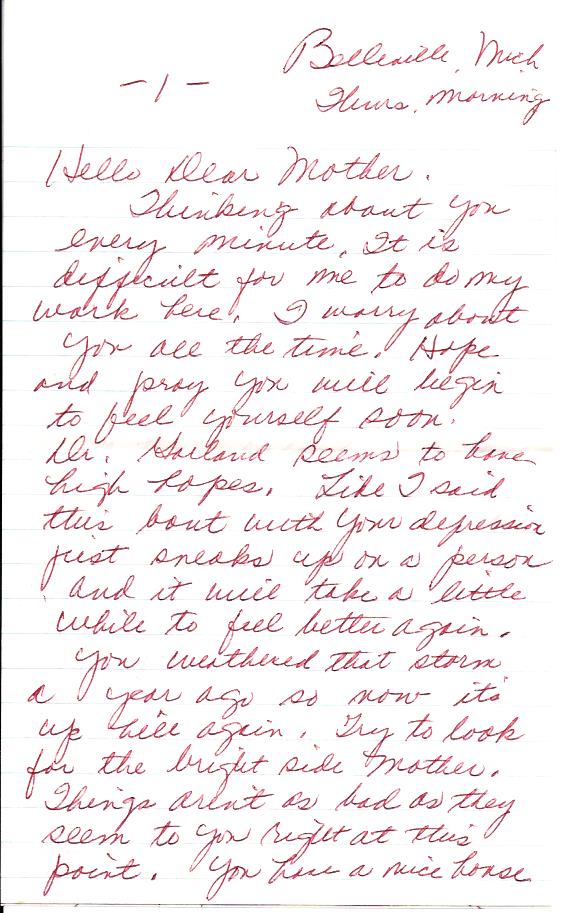 Belleville, Mich
- 1 -
Thurs. morning
Hello Dear Mother.
Thinking about you
every minute. It is
difficult for me to do my
work here. I worry about
you all the time. Hope
and pray you will begin
to feel yourself soon.
Dr. Garland seems to have
high hopes. Like I said
this bout with your depression
just sneaks up on a person
and it will take a little
while to feel better again.
You weathered that storm
a year ago so now it's
up hill again. Try to look
for the bright side Mother.
Things aren't as bad as they
seem to you right at this
point. You have a nice house